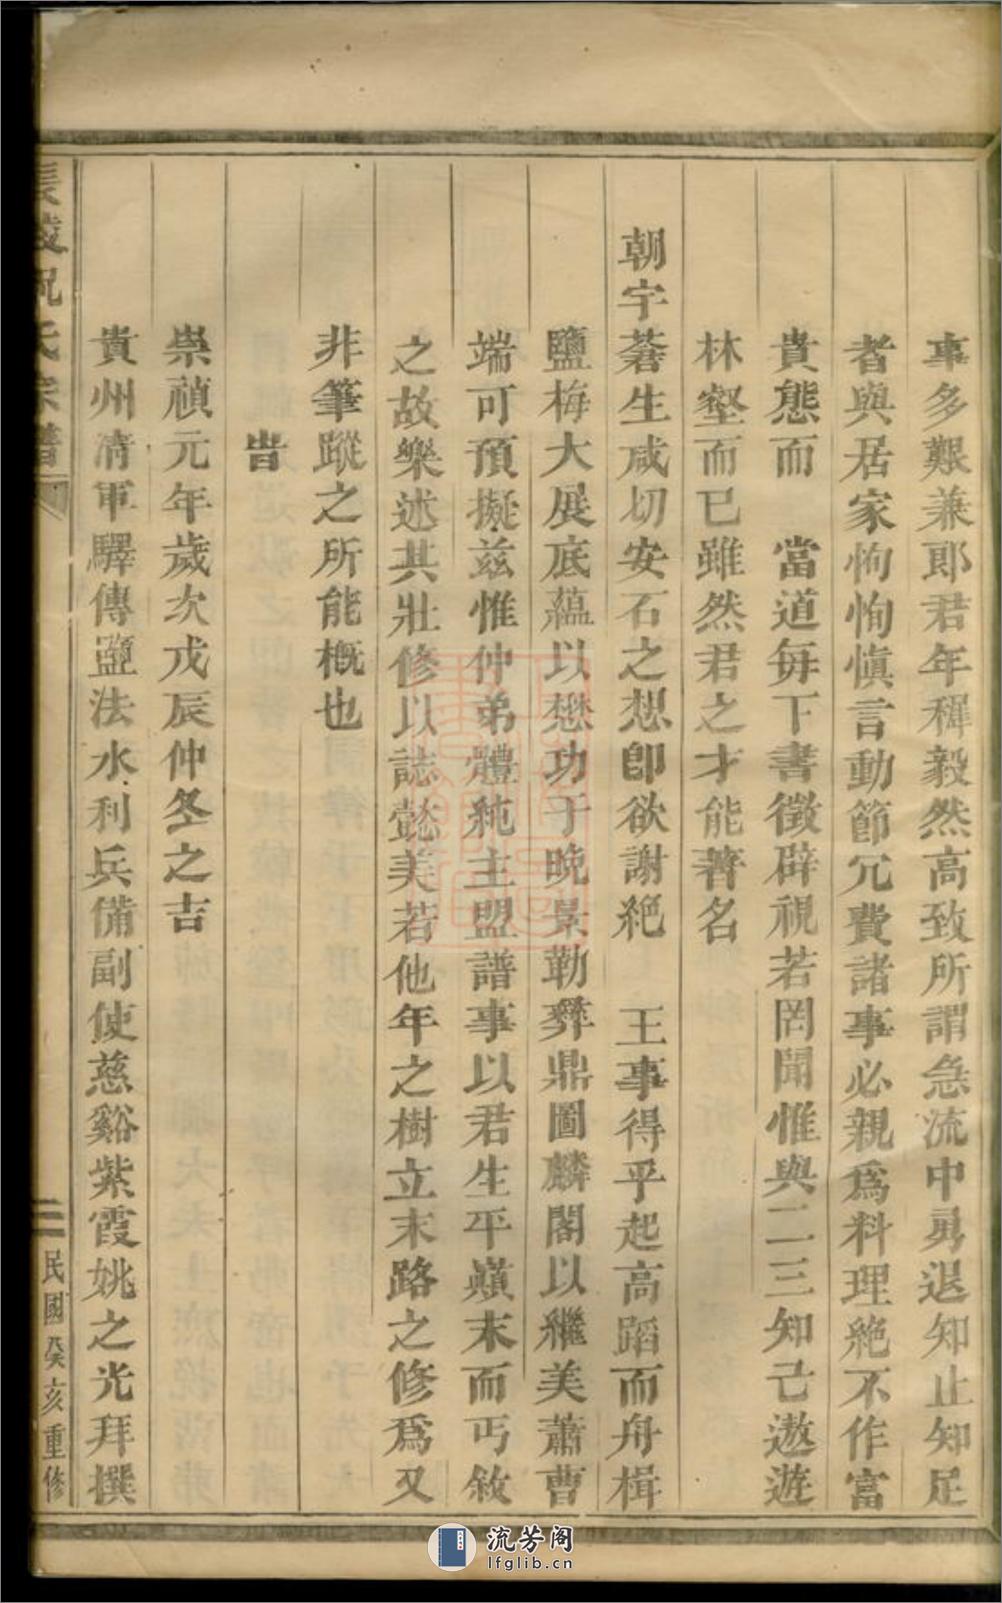 事多艱兼郎君年穉毅然高致所謂急流中勇退知止知足
者與居家恂恂愼言動節冗費諸事必親爲料理絶不作富
貴態而 當道每下書徵辟視若罔聞惟與二三知己遨遊
林壑而已雖然君之才能著名
朝宇蒼生咸切安石之想卽欲謝絶 王事得乎起高蹈而舟楫
鹽梅大展底蘊以懋功于晚景勒彝鼎圖麟閣以繼美蕭曹
端可預擬兹惟仲弟體純主盟譜事以君生平巔末而丐敘
之故樂述其壯修以誌懿美若他年之樹立末路之修爲又
非筆蹤之所能概也
旹
崇禎元年歲次戊辰仲冬之吉
貴州清軍驛傳鹽法水利兵備副使慈谿紫霞姚之光拜撰
氏宗譜
二
民國癸亥重修
流芳阁
lfglib.cn